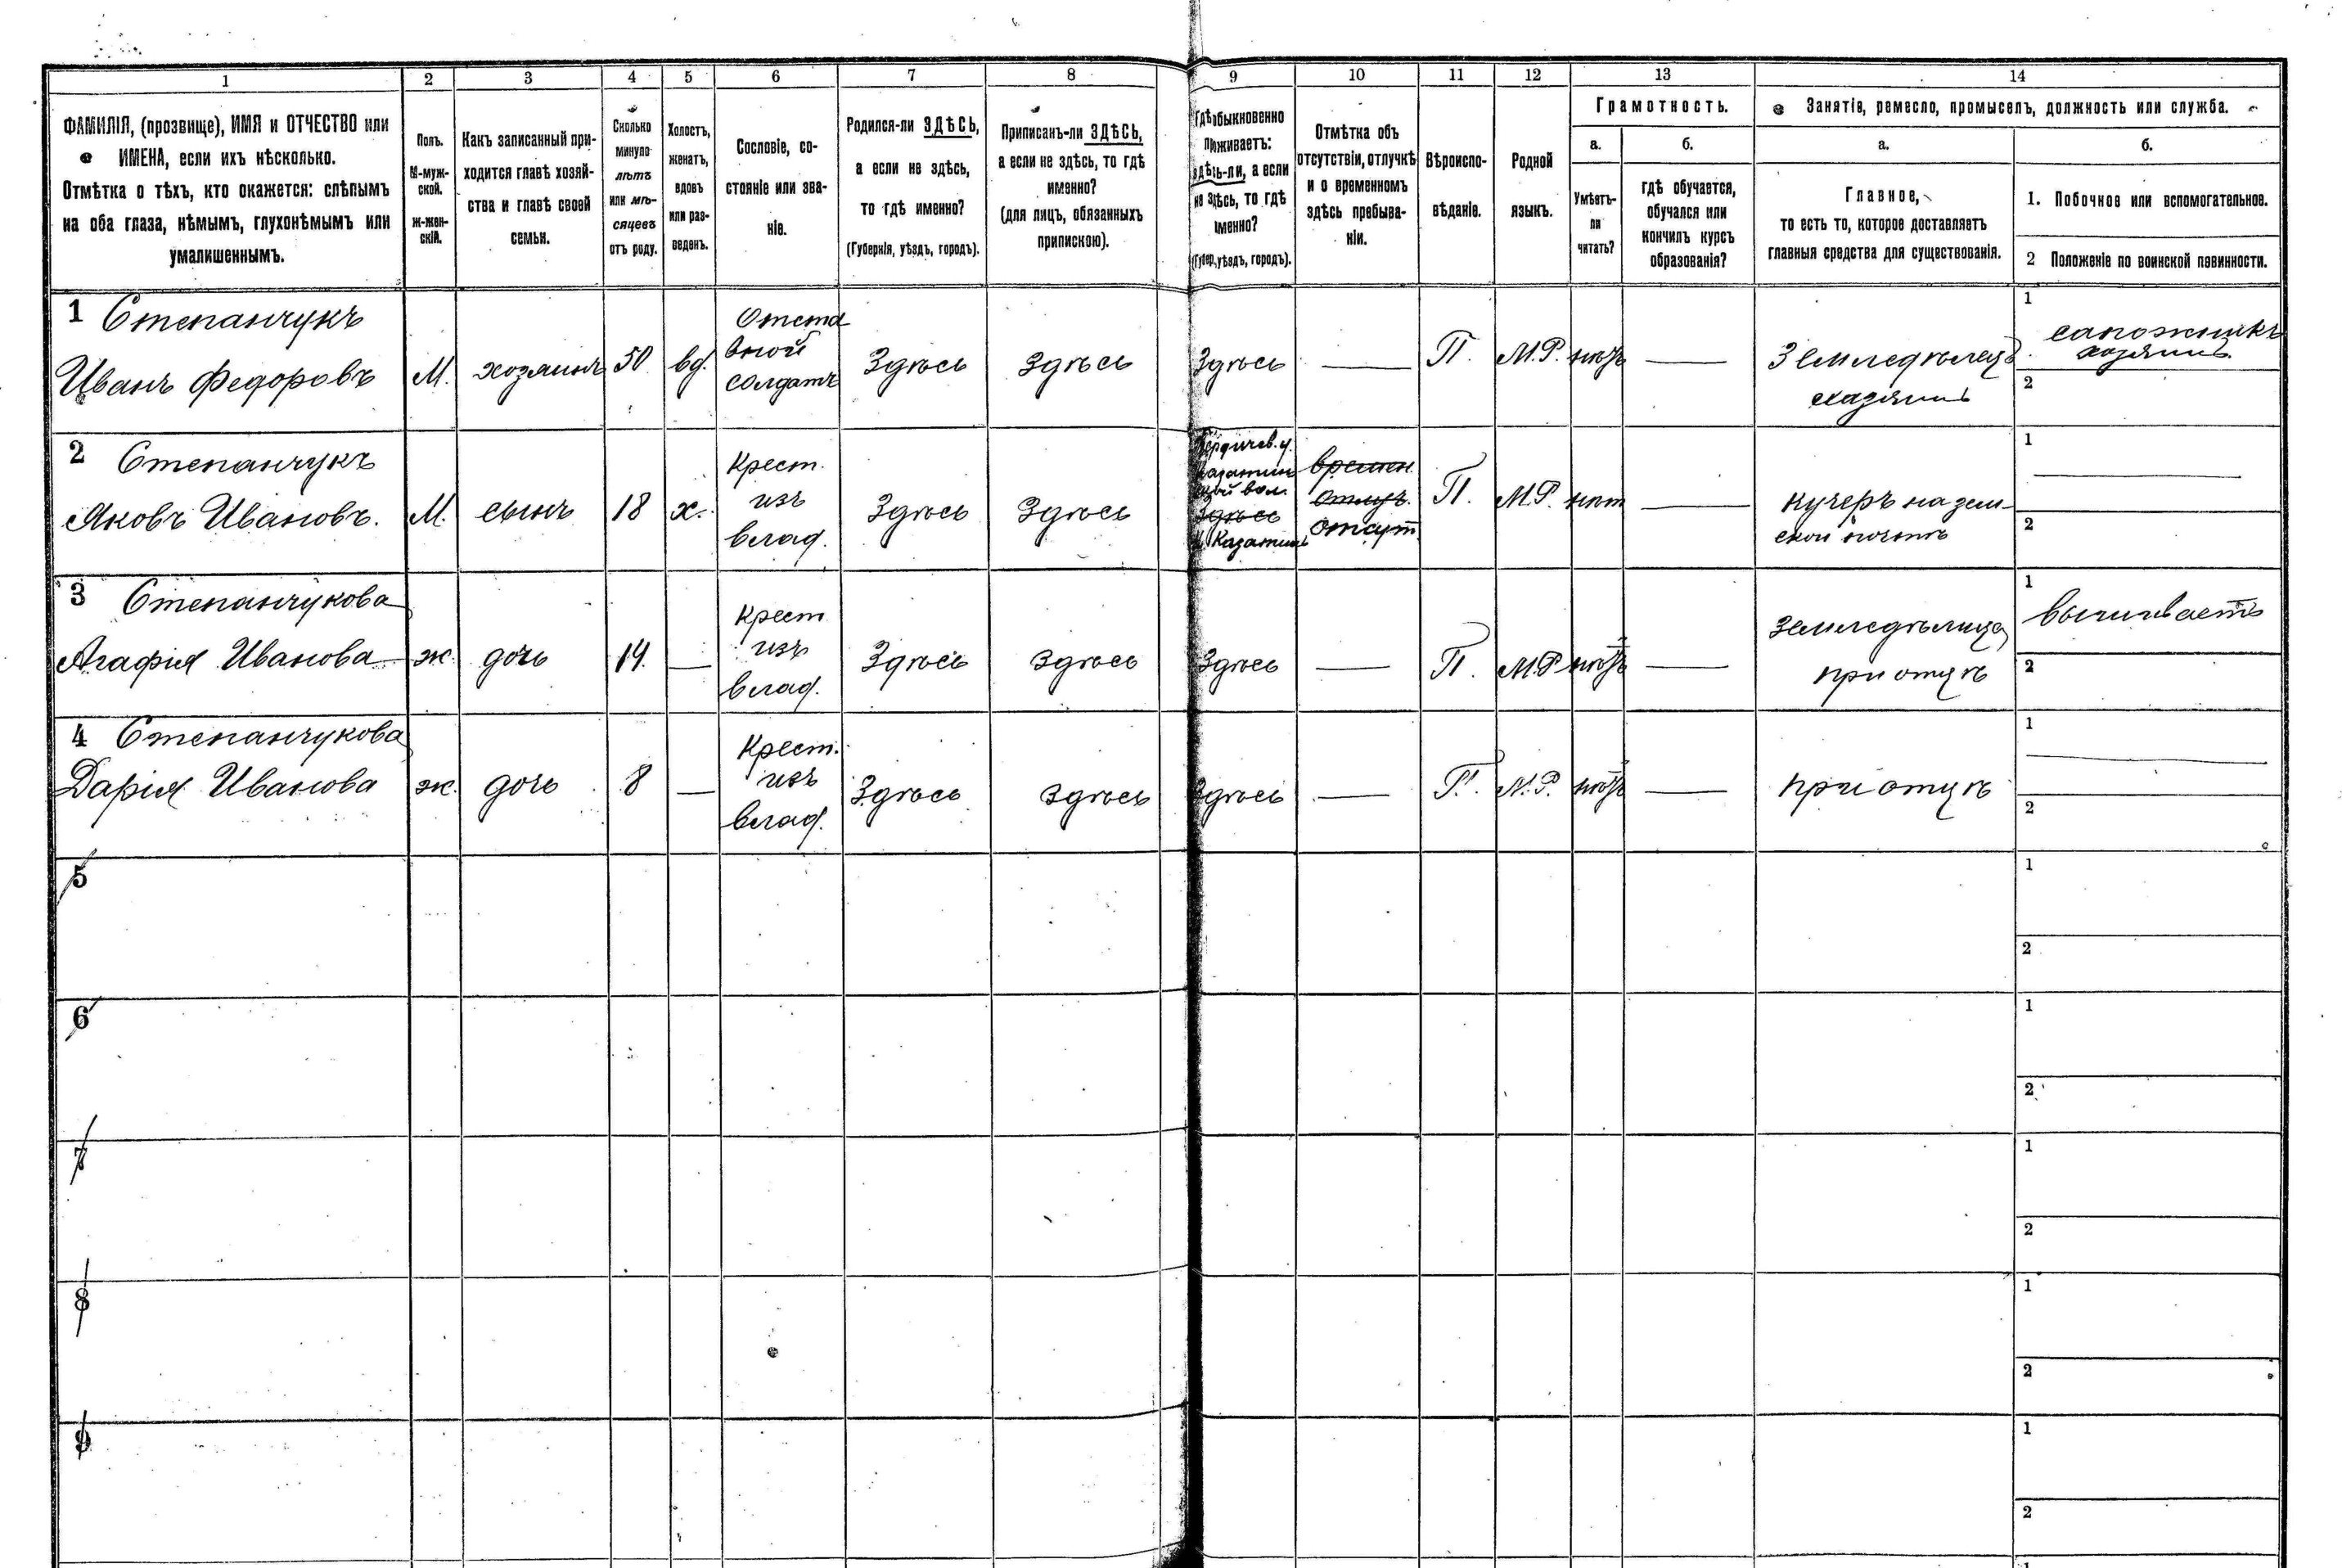 1 2 3 4 5 6 7 8 9 10 11 12 13 14
ФАМИЛІЯ, (прозвище), ИМЯ и ОТЧЕСТВО или
ИМЕНА, если ихъ нѣсколько.
Отмѣтка о тѣхъ, кто окажется: слѣпымъ
на оба глаза, нѣмымъ, глухонѣмымъ или
умалишеннымъ.
Полъ.
М-муж-
ской.
ж-жен-
скій.
Какъ записанный при-
ходится главѣ хозяй-
ства и главѣ своей
семьи.
Сколько
минуло
лѣтъ
или мѣ-
сяцевъ
отъ роду.
Холостъ,
женатъ,
вдовъ
или раз-
веденъ.
Сословіе, со-
стояніе или зва-
ніе.
Родился-ли ЗДѢСЬ,
а если не здѣсь,
то гдѣ именно?
(Губернія, уѣздъ, городъ).
Приписанъ-ли ЗДѢСЬ,
а если не здѣсь, то гдѣ
именно?
(для лицъ, обязанныхъ
припискою).
Гдѣ обыкновенно
проживаетъ:
здѣсь-ли, а если
не здѣсь, то гдѣ
именно?
(Губер., уѣздъ, городъ).
Отмѣтка объ
отсутствіи, отлучкѣ
и о временномъ
здѣсь пребыва-
ніи.
Вѣроиспо-
вѣданіе.
Родной
языкъ.
Грамотность.
а.
Умѣетъ-
ли
читать?
б.
гдѣ обучается,
обучался или
кончилъ курсъ
образованія?
Занятіе, ремесло, промыселъ, должность или служба.
а.
Главное,
то есть то, которое доставляетъ
главныя средства для существованія.
б.
1. Побочное или вспомогательное.
2 Положеніе по воинской повинности.
1 Степанчукъ
Иванъ Федоровъ
М.
хозяинъ
50
вд.
Отста
вной
солдатъ
Здѣсь
Здѣсь
Здѣсь
—
П.
М.Р.
—
Земледѣлецъ
хозяинъ
1
сапожникъ
хозяинъ
2
2 Степанчукъ
Яковъ Ивановъ.
М.
сынъ
18
х.
Крест.
изъ
влад.
Здѣсь
Здѣсь
Бердичев. у.
Казатин
ской вол.
Здѣсь
Казатинъ
времен
отлуч.
отсут
П.
М.Р.
нѣт
—
кучеръ на зем-
ской почтѣ
1
—
2
3 Степанчукова
Агафія Иванова
ж.
дочь
14.
—
Крест
изъ
влад.
Здѣсь
Здѣсь
Здѣсь
—
П.
М.Р
—
Земледѣлица
при отцѣ
1
вышиваетъ
2
4 Степанчукова
Дарія Иванова
ж.
дочь
8
—
Крест.
изъ
влад.
Здѣсь
Здѣсь
Здѣсь
—
П.
М.Р.
—
при отцѣ
1
—
2
5
1
2
6
1
2
7
1
2
8
1
2
9
1
2